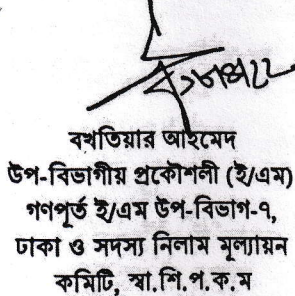 বখতিয়ার আহমেদ
উপ-বিভাগীয় প্রকৌশলী (ই/এম)
গণপূর্ত ই/এম উপ-বিভাগ-৭,
ঢাকা ও সদস্য নিলাম মূল্যায়ন
কমিটি, স্বা.শি.প.ক.ম